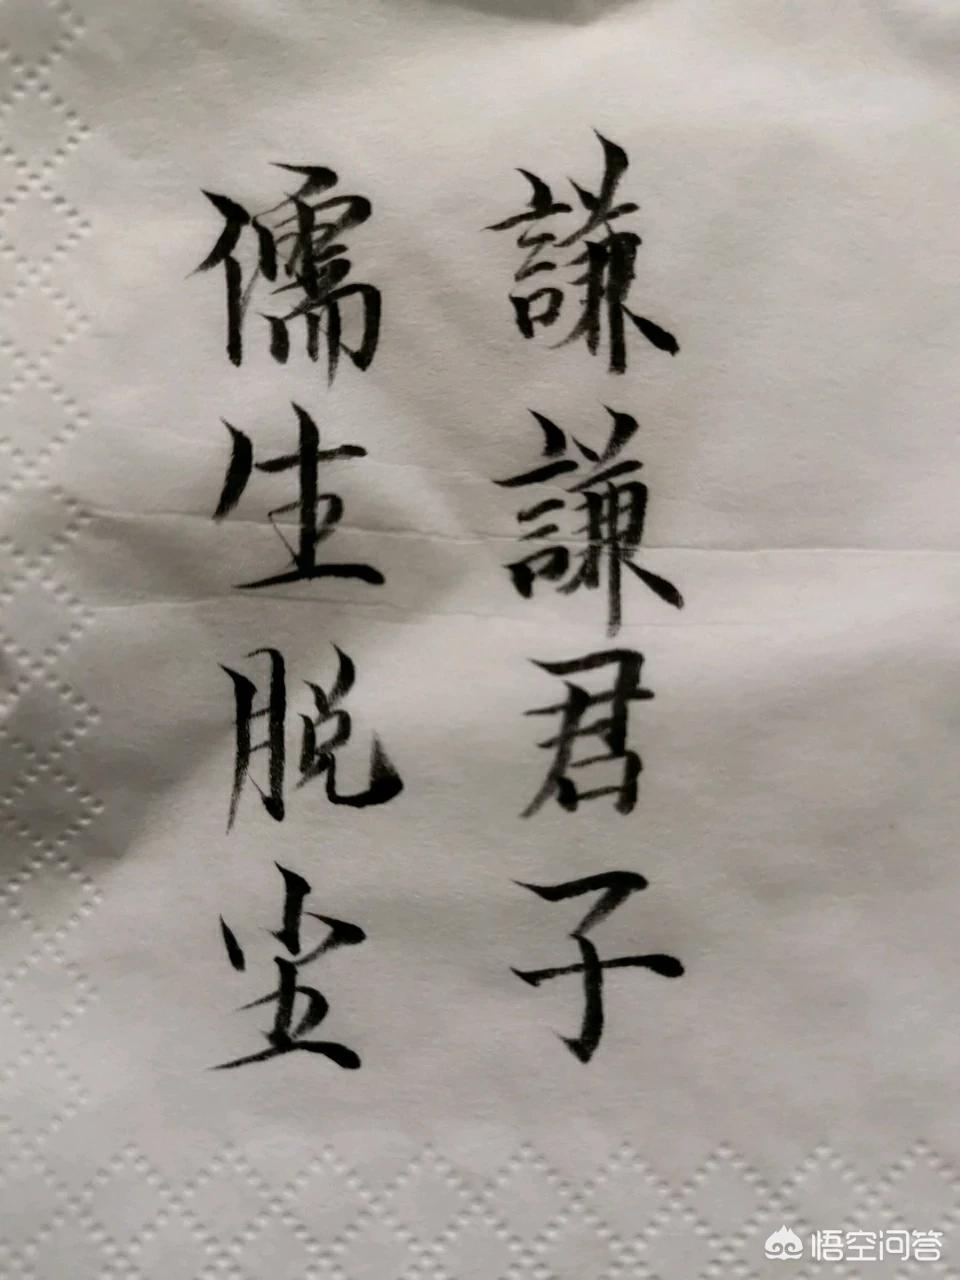 謙謙君子
儒生脱尘
悟空问答